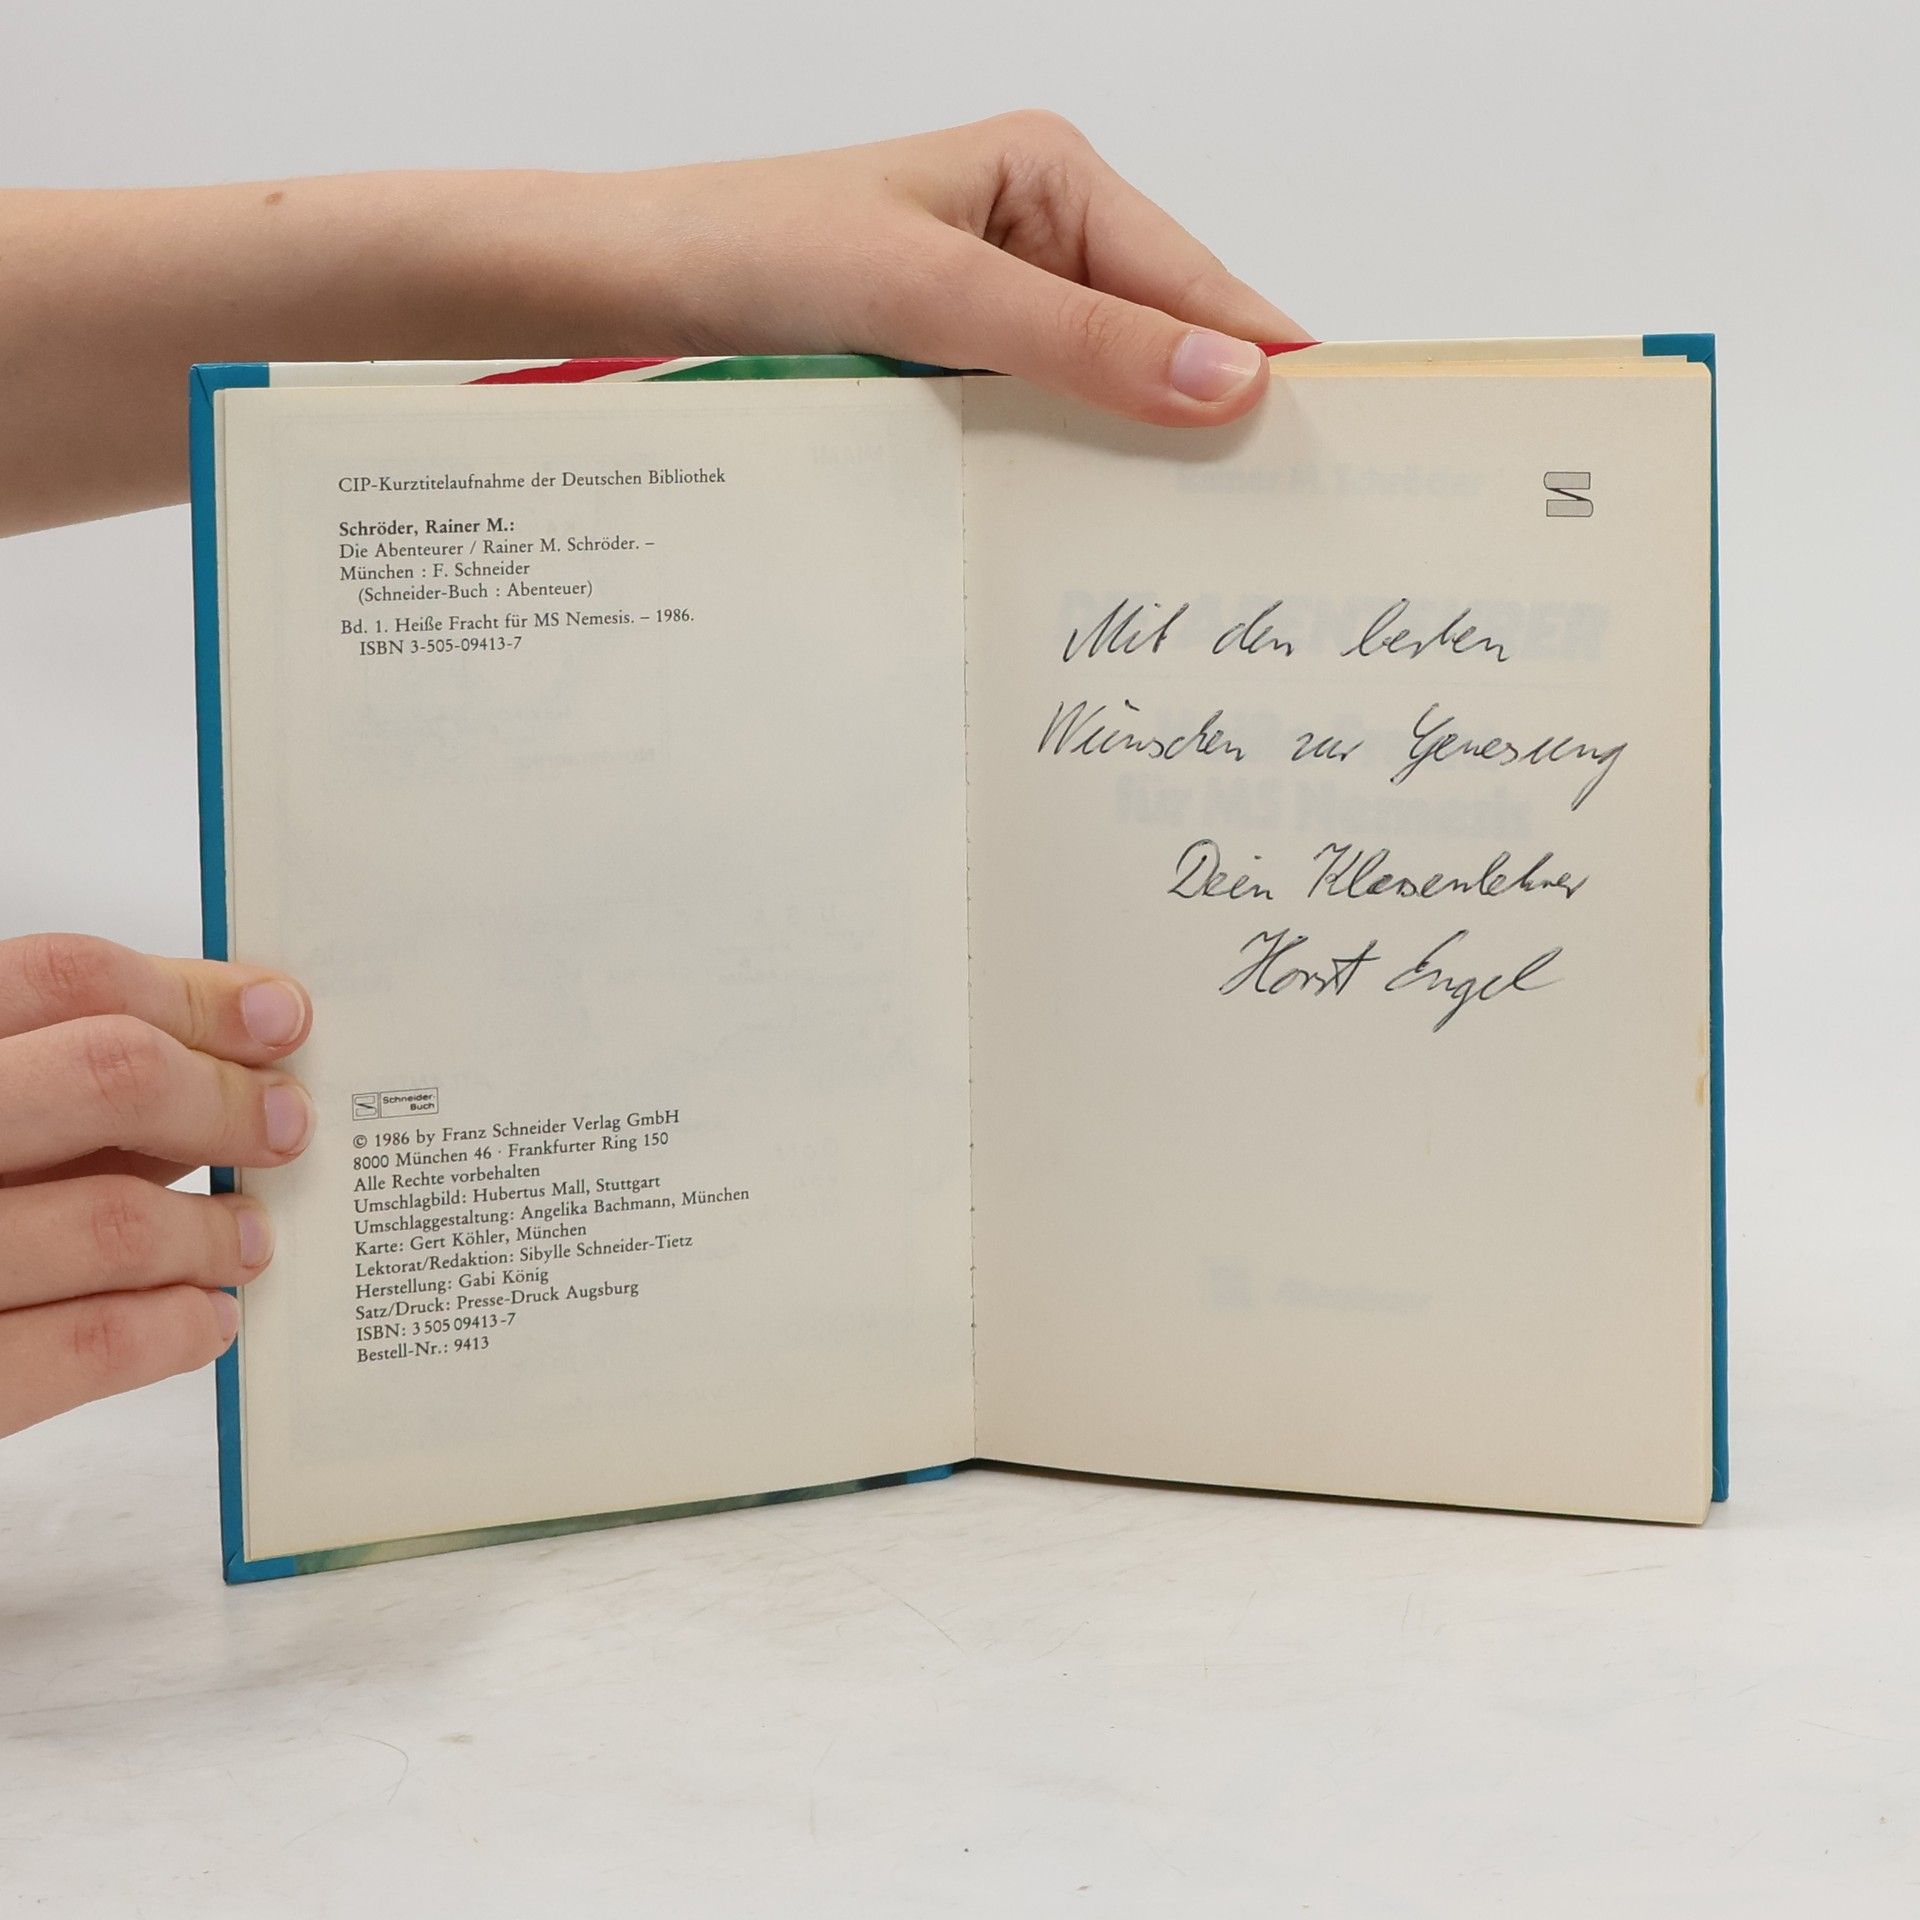 CIP-Kurztitelaufnahme der Deutschen Bibliothek
Schröder, Rainer M.:
Die Abenteurer / Rainer M. Schröder. –
München : F. Schneider
(Schneider-Buch : Abenteuer)
Bd. 1. Heiße Fracht für MS Nemesis. – 1986.
ISBN 3-505-09413-7
Schneider-
Buch
© 1986 by Franz Schneider Verlag GmbH
8000 München 46 · Frankfurter Ring 150
Alle Rechte vorbehalten
Umschlagbild: Hubertus Mall, Stuttgart
Umschlaggestaltung: Angelika Bachmann, München
Karte: Gert Köhler, München
Lektorat/Redaktion: Sibylle Schneider-Tietz
Herstellung: Gabi König
Satz/Druck: Presse-Druck Augsburg
ISBN: 3 505 09413-7
Bestell-Nr.: 9413
Mit den besten
Wünschen zur Genesung
Dein Klassenlehrer
Horst Engel